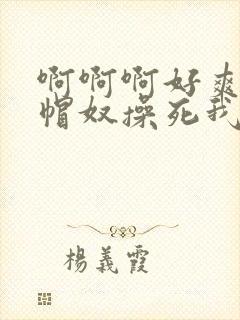 啊啊啊好爽
帽奴操死我
楊義霞